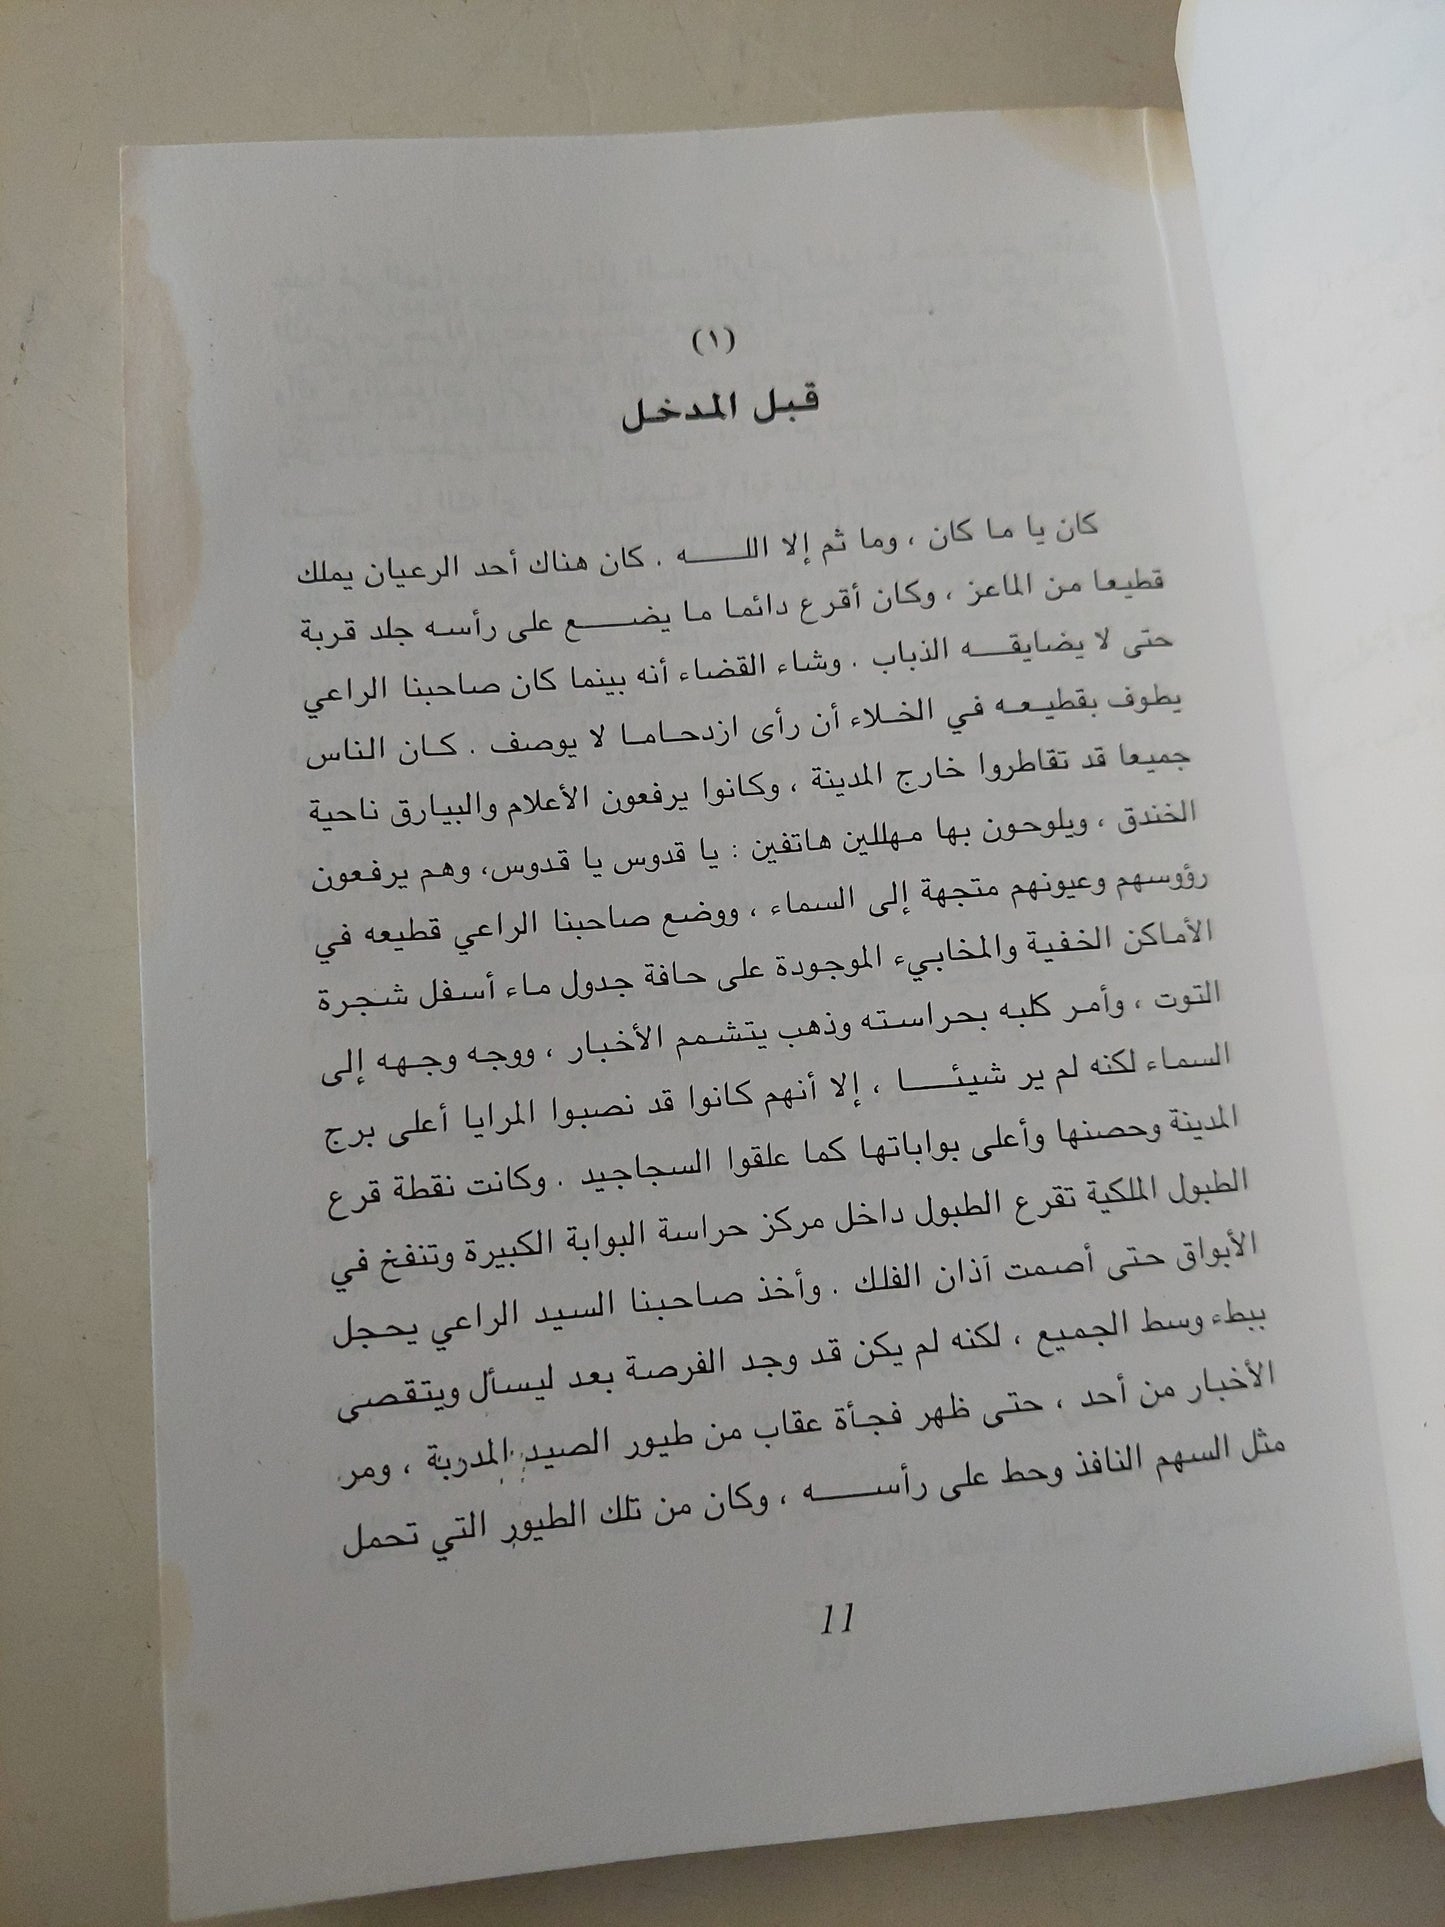 (١)
قبل المدخل
كان يا ما كان ، وما ثم إلا اللـــــه . كان هناك أحد الرعيان يملك
قطيعا من الماعز ، وكان أقرع دائما ما يضـــــع على رأسه جلد قربة
حتى لا يضايقـــــه الذباب . وشاء القضاء أنه بينما كان صاحبنا الراعي
يطوف بقطيعه في الخلاء أن رأى ازدحاما لا يوصف . كان الناس
جميعا قد تقاطروا خارج المدينة ، وكانوا يرفعون الأعلام والبيارق ناحية
الخندق ، ويلوحون بها مهللين هاتفين : يا قدوس يا قدوس، وهم يرفعون
رؤوسهم وعيونهم متجهة إلى السماء ، ووضع صاحبنا الراعي قطيعه في
الأماكن الخفية والمخابيء الموجودة على حافة جدول ماء أسفل شجرة
التوت ، وأمر كلبه بحراسته وذهب يتشمم الأخبار ، ووجه وجهه إلى
السماء لكنه لم ير شيئـــــا ، إلا أنهم كانوا قد نصبوا المرايا أعلى برج
المدينة وحصنها وأعلى بواباتها كما علقوا السجاجيد . وكانت نقطة قرع
الطبول الملكية تقرع الطبول داخل مركز حراسة البوابة الكبيرة وتنفخ في
الأبواق حتى أصمت آذان الفلك . وأخذ صاحبنا السيد الراعي يحجل
ببطء وسط الجميع ، لكنه لم يكن قد وجد الفرصة بعد ليسأل ويتقصى
الأخبار من أحد ، حتى ظهر فجأة عقاب من طيور الصيد المدربة ، ومر
مثل السهم النافذ وحط على رأســـــه ، وكان من تلك الطيور التي تحمل
11